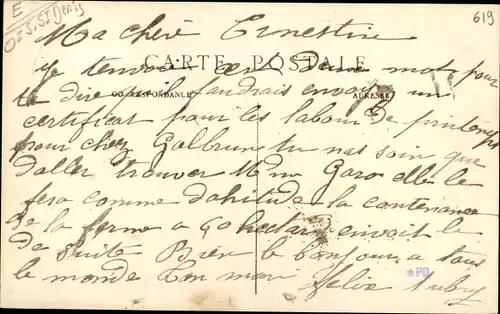 E
O=S.St Denis
619
Ma chère Ernestine
CARTE POSTALE
CORRESPONDANCE
ADRESSE
je tenvoie ces deux mots pour
te dire quil faudrais envoyez un
certificat pour les labour de printemps
pour chez Galbrun tu nas soin que
daller trouver Mme Garo elle le
fera comme dahitude la contenance
de la ferme a 60 hectars envoit le
de suite Bien le bonjour a tous
le monde Ton mari Felix Aubry
*PB